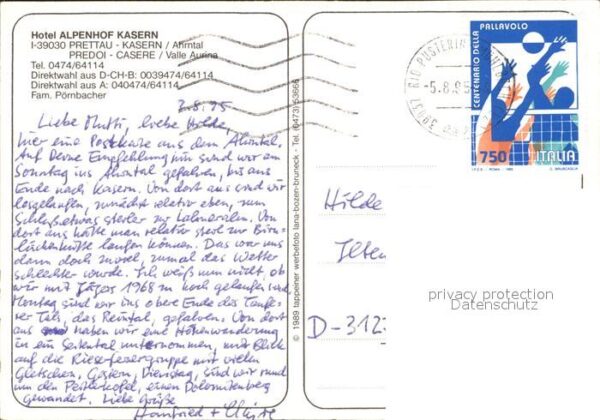 Hotel ALPENHOF KASERN
I-39030 PRETTAU - KASERN / Ahrntal
PREDOI - CASERE / Valle Aurina
Tel. 0474/64114
Direktwahl aus D-CH-B: 0039474/64114
Direktwahl aus A: 040474/64114
Fam. Pörnbacher
2.8.95
Liebe Mutti, liebe Hilde,
hier eine Postkarte aus dem Ahrntal.
Auf Deine Empfehlung hin sind wir am
Sonntag ins Ahrntal gefahren, bis ans
Ende nach Kasern. Von dort aus sind wir
losgelaufen, zunächst relativ eben, zum
Schluß etwas steiler zur Lahneralm. Von
dort aus hätte man relativ steil zur Birn-
lückenhütte laufen können. Das war uns
dann doch zuviel, zumal das Wetter
schlechter wurde. Ich weiß nun nicht, ob
wir mit Jäger 1968 so hoch gelaufen sind.
Montag sind wir ins obere Ende des Taufe-
rer Tals, das Reintal, gefahren. Von dort
aus haben wir eine Höhenwanderung
in ein Seitental unternommen, mit Blick
auf die Rieserfernergruppe mit vielen
Gletschern. Gestern, Dienstag, sind wir rund
um den Peitlerkofel, einen Dolomitenberg
gewandert. Liebe Grüße
Hannfried +
© 1989 tappeiner werbefoto lana-bozen-bruneck - Tel. (0473)
CENTENARIO DELLA
PALLAVOLO
750 ITALIA
I.P.Z.S. - ROMA - 1995
-5.8.95
Hilde
Ilten
D-312
privacy protection
Datenschutz